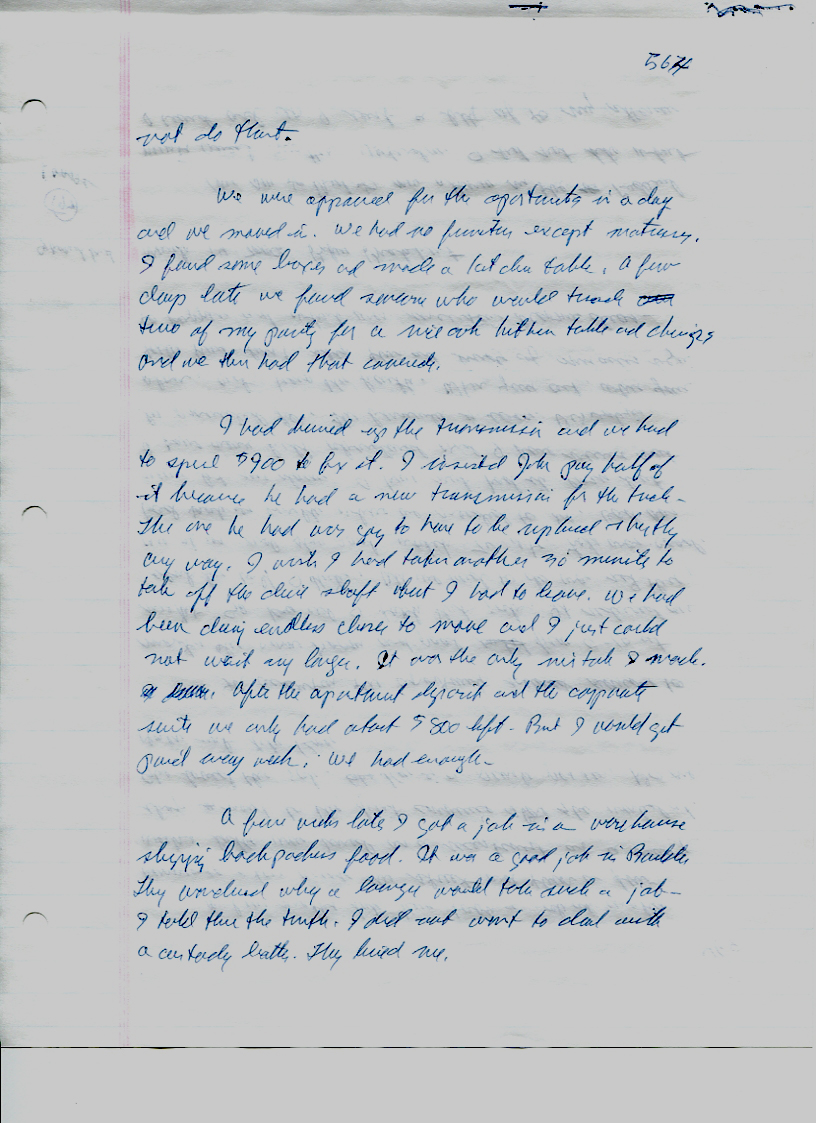 564
not do that.
We were approved for the apartment in a day
and we moved in. We had no furniture except mattresses.
I found some boxes and made a kitchen table. A few
days late we found someone who would trade
two of my for a nice oak kitchen table and chairs
and we then had that covered.
I had burned up the transmission and we had
to spend $900 to fix it. I insisted John pay half of
it because he had a new transmission for the truck-
The one he had was going to have to be replaced shortly
any way. I wish I had taken another 30 minutes to
take off the drive shaft but I had to leave. We had
been doing endless chores to move and I just could
not wait any longer. It was the only mistake I made.
After the apartment deposit and the corporate
suite we only had about $800 left. But I would get
paid every week. We had enough-
A few weeks late I got a job in a warehouse
shipping backpackers food. It was a good job in Boulder
They wondered why a lawyer would take such a job-
I told them the truth. I did not want to deal with
a custody battle. They hired me.